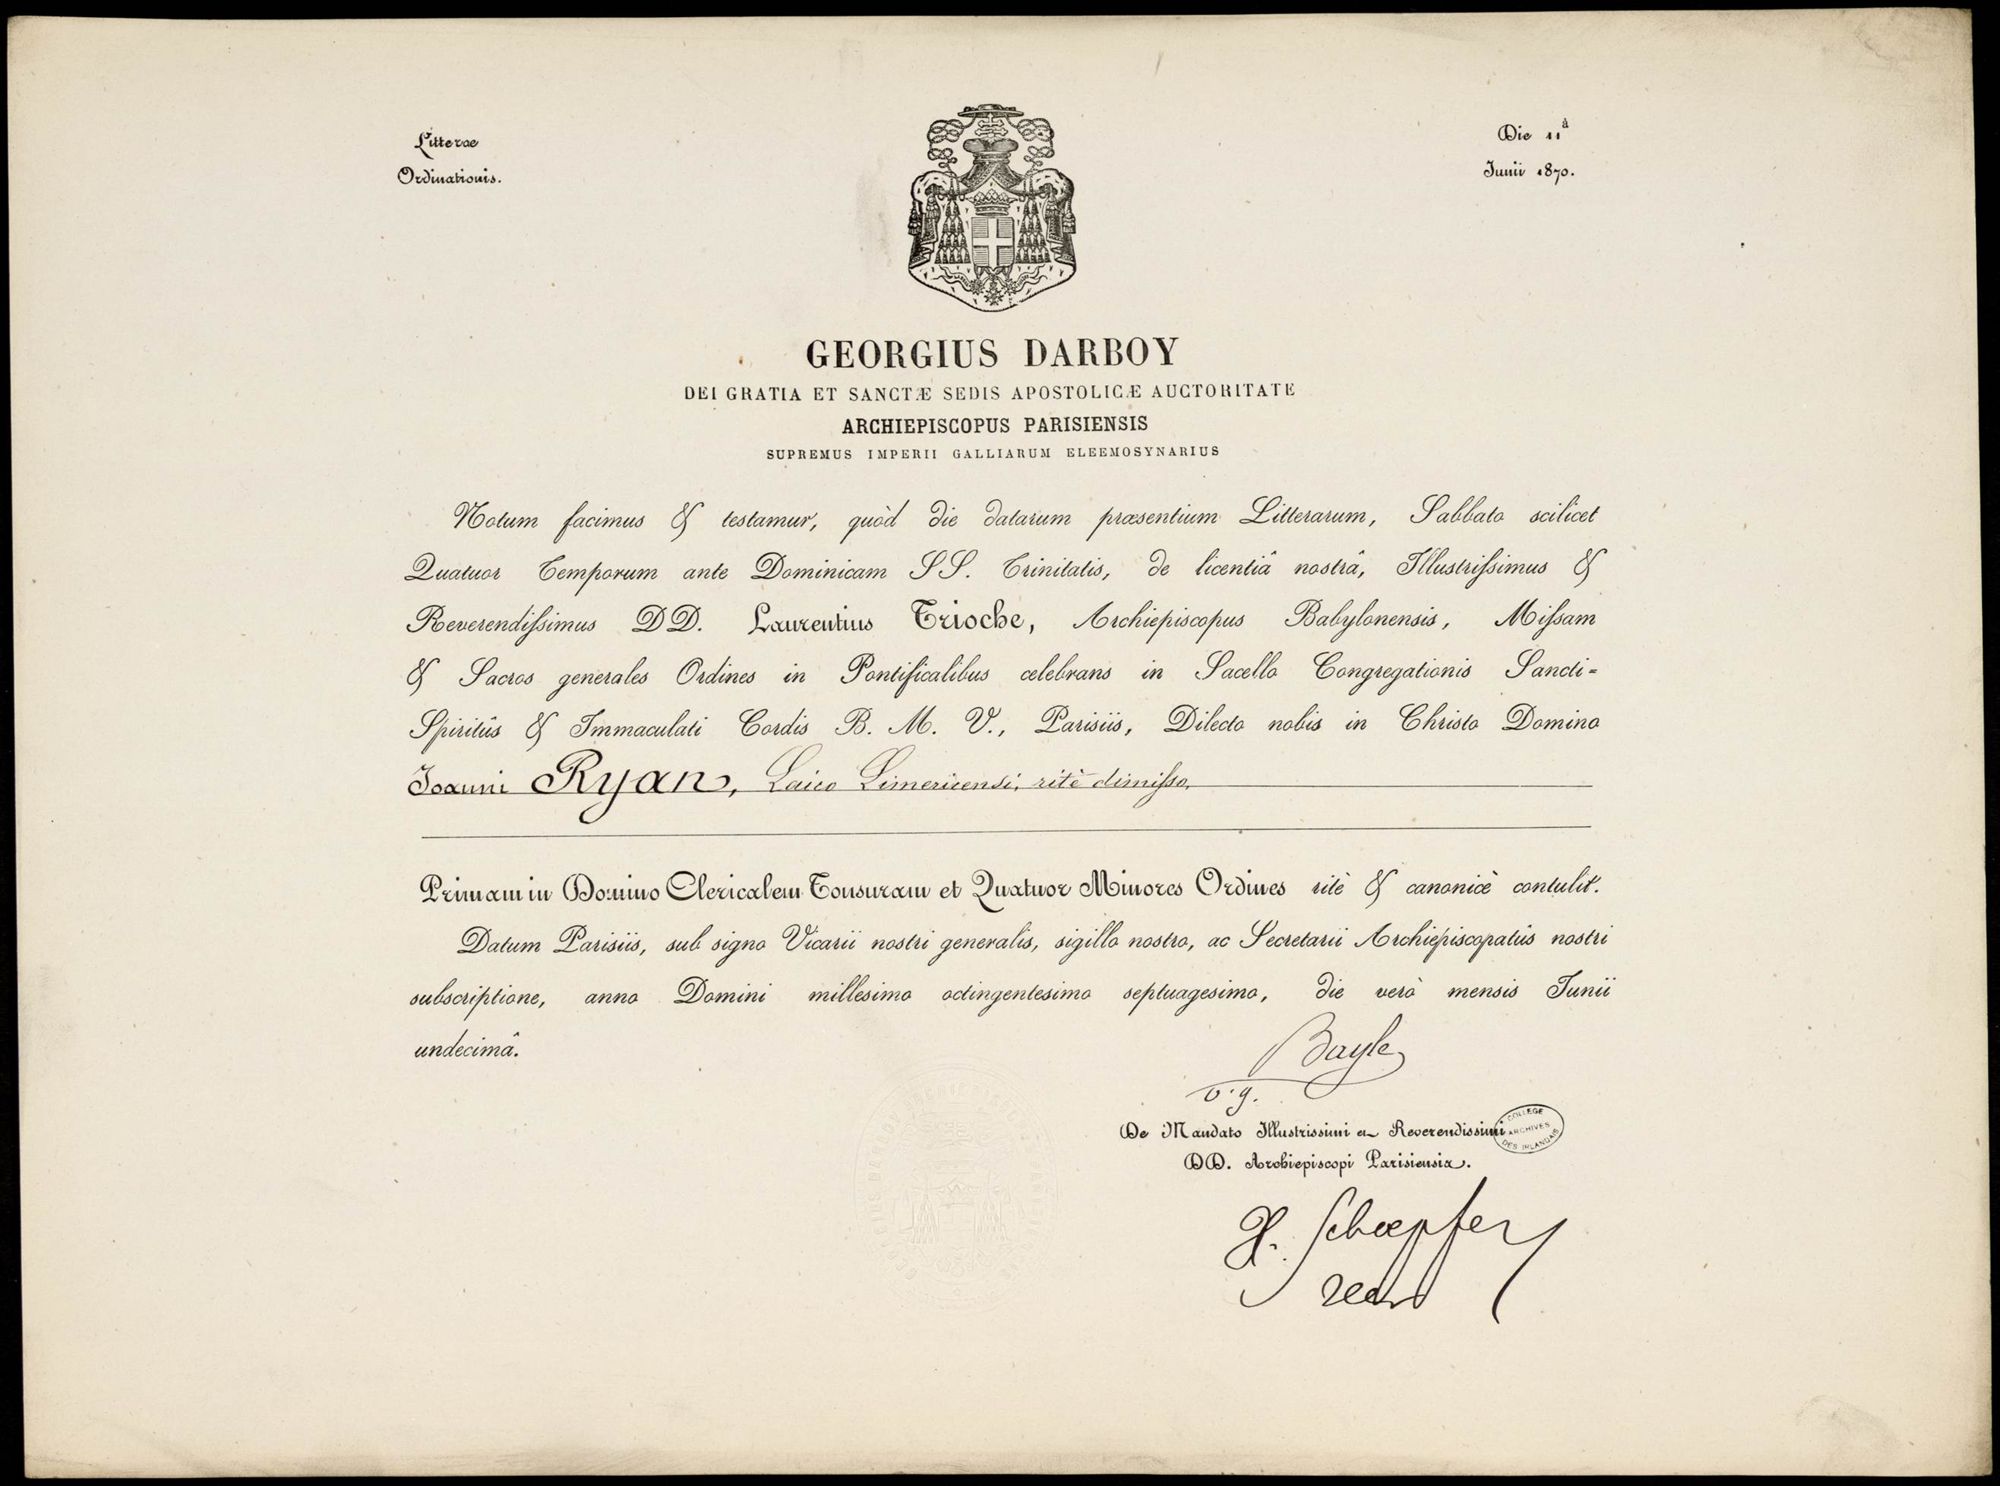 Litterae
Ordinationis.
Die 11â
Junii 1870.
GEORGIUS DARBOY
DEI GRATIA ET SANCTÆ SEDIS APOSTOLICÆ AUCTORITATE
ARCHIEPISCOPUS PARISIENSIS
SUPREMUS IMPERII GALLIARUM ELEEMOSYNARIUS
Notum facimus & testamur, quòd die datarum præsentium Litterarum, Sabbato scilicet
Quatuor Temporum ante Dominicam SS. Trinitatis, de licentiâ nostrâ, Illustrissimus &
Reverendissimus DD. Laurentius Trioche, Archiepiscopus Babylonensis, Missam
& Sacros generales Ordines in Pontificalibus celebrans in Sacello Congregationis Sancti=
Spiritûs & Immaculati Cordis B. M. V., Parisiis, Dilecto nobis in Christo Domino
Joanni Ryan, Laico Limericensi, ritè dimisso,
Primam in Domino Clericalem Tonsuram et Quatuor Minores Ordines ritè & canonicè contulit.
Datum Parisiis, sub signo Vicarii nostri generalis, sigillo nostro, ac Secretarii Archiepiscopatûs nostri
subscriptione, anno Domini millesimo octingentesimo septuagesimo, die verò mensis Junii
undecimâ.
Bayle
v. g.
De Mandato Illustrissimi et Reverendissimi
DD. Archiepiscopi Parisiensis.
COLLEGE
ARCHIVES
DES IRLANDAIS
H. Schoepfer